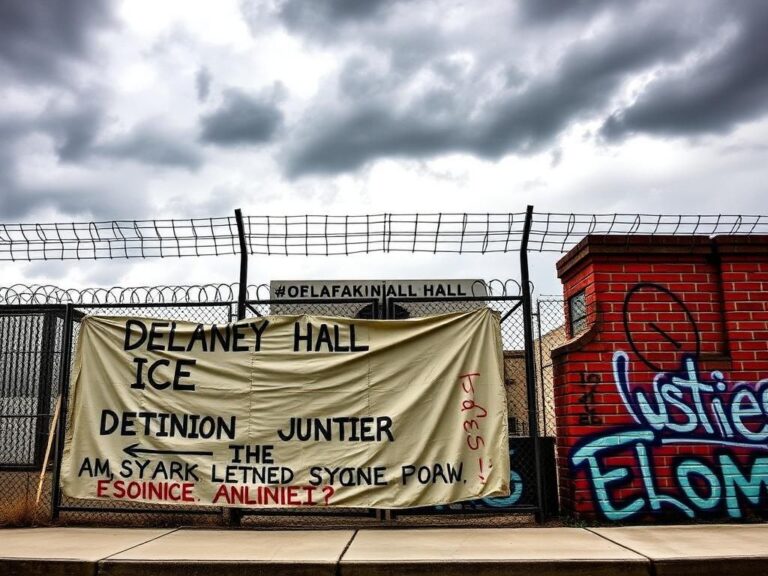 #OFLAFAKINIALL HALL
DELANEY HALL
ICE
DETINION JUNTIER
THE
AM, SYARK LETNED SYCINE POAW.
ESOINICE. ANLINIET?
ELOM